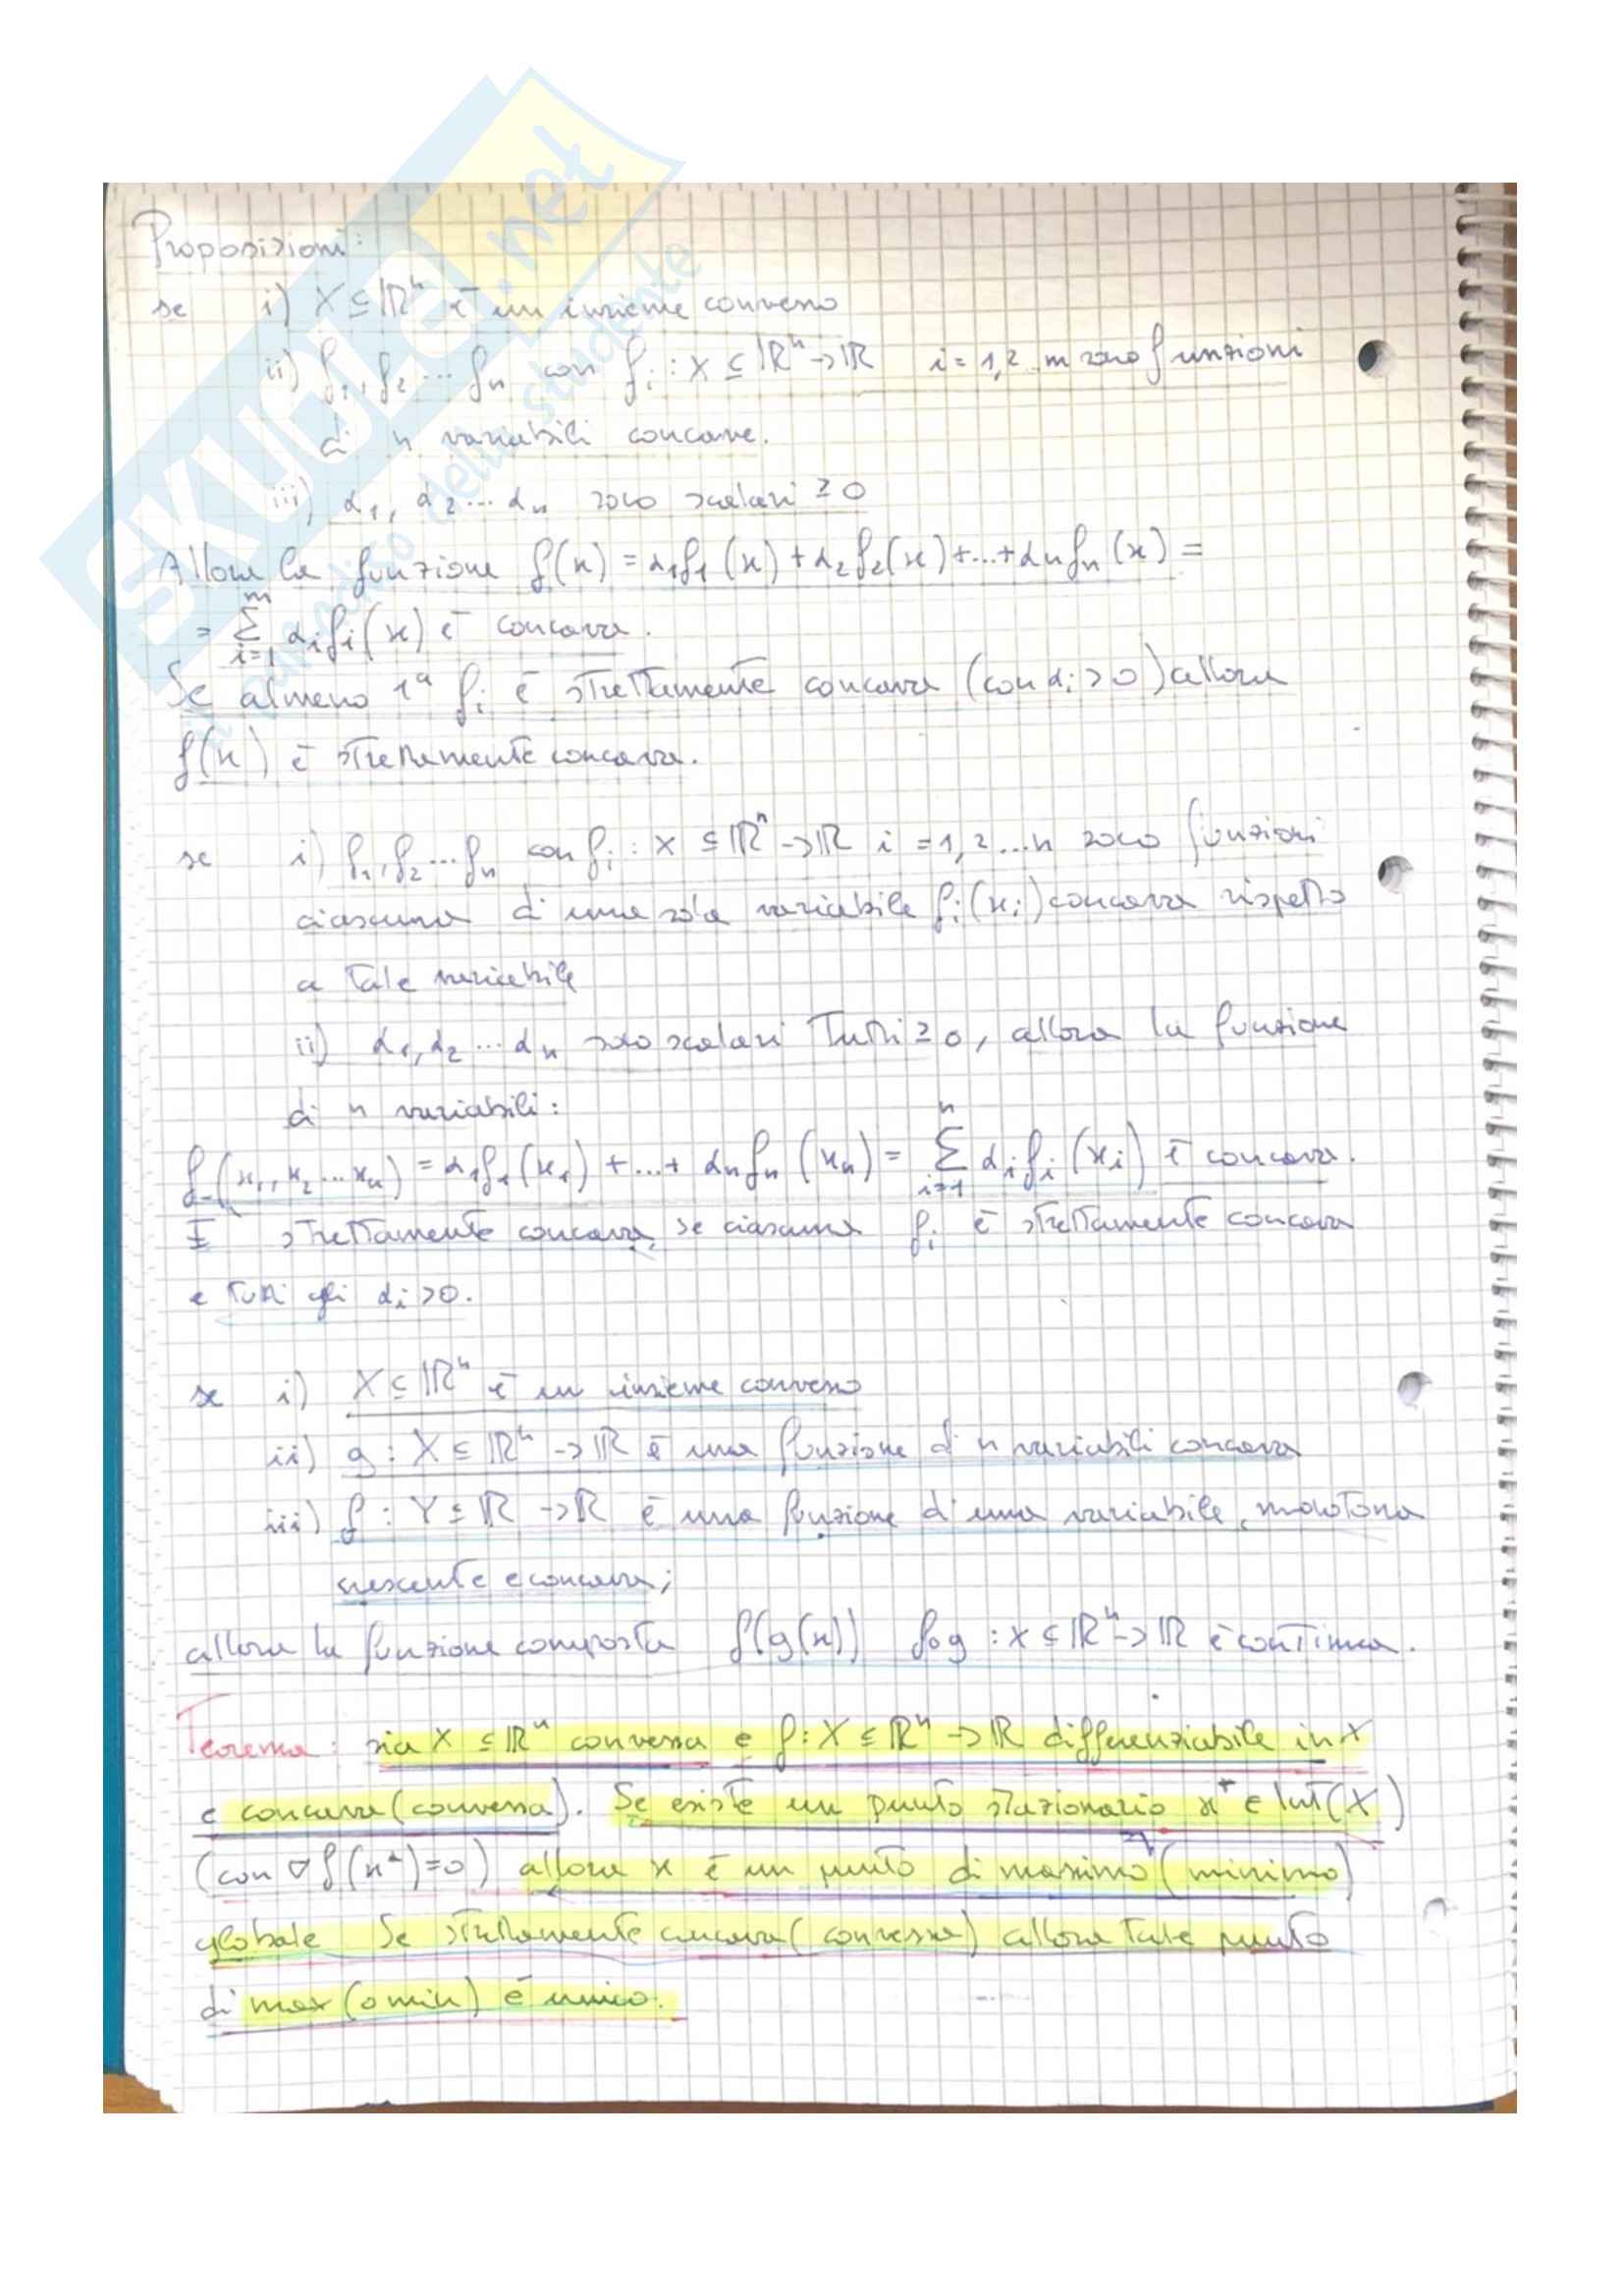 SKUOLA.net
il paradiso dello studente
Proposizioni:
se i) X ⊆ ℝⁿ è un insieme convesso
ii) f₁, f₂ ... fₙ con fᵢ : X ⊆ ℝⁿ → ℝ i = 1, 2 .. m sono funzioni
di n variabili concave.
iii) α₁, α₂ ... αₙ sono scalari ≥ 0
Allora la funzione f(x) = α₁f₁(x) + α₂f₂(x) + ... + αₙfₙ(x) =
= Σᵢ₌₁ᵐ αᵢfᵢ(x) è concava.
Se almeno 1ª fᵢ è strettamente concava (con αᵢ > 0) allora
f(x) è strettamente concava.
se i) f₁, f₂ ... fₙ con fᵢ : X ⊆ ℝⁿ → ℝ i = 1, 2 ... n sono funzioni
ciascuna di una sola variabile fᵢ(xᵢ) concava rispetto
a tale variabile
ii) α₁, α₂ ... αₙ sono scalari tutti ≥ 0, allora la funzione
di n variabili:
f(x₁, x₂ ... xₙ) = α₁f₁(x₁) + ... + αₙfₙ(xₙ) = Σᵢ₌₁ⁿ αᵢfᵢ(xᵢ) è concava.
È strettamente concava, se ciascuna fᵢ è strettamente concava
e tutti gli αᵢ > 0.
se i) X ⊆ ℝⁿ è un insieme convesso
ii) g : X ⊆ ℝⁿ → ℝ è una funzione di n variabili concava
iii) f : Y ⊆ ℝ → ℝ è una funzione di una variabile, monotona
crescente e concava;
allora la funzione composta f(g(x)) f∘g : X ⊆ ℝⁿ → ℝ è continua.
Teorema: sia X ⊆ ℝⁿ convessa e f : X ⊆ ℝⁿ → ℝ differenziabile in X
e concava (convessa). Se esiste un punto stazionario x* ∈ Int(X)
(con ∇f(x*) = 0) allora x è un punto di massimo (minimo)
globale Se strettamente concava (convessa) allora tale punto
di max (o min) è unico.